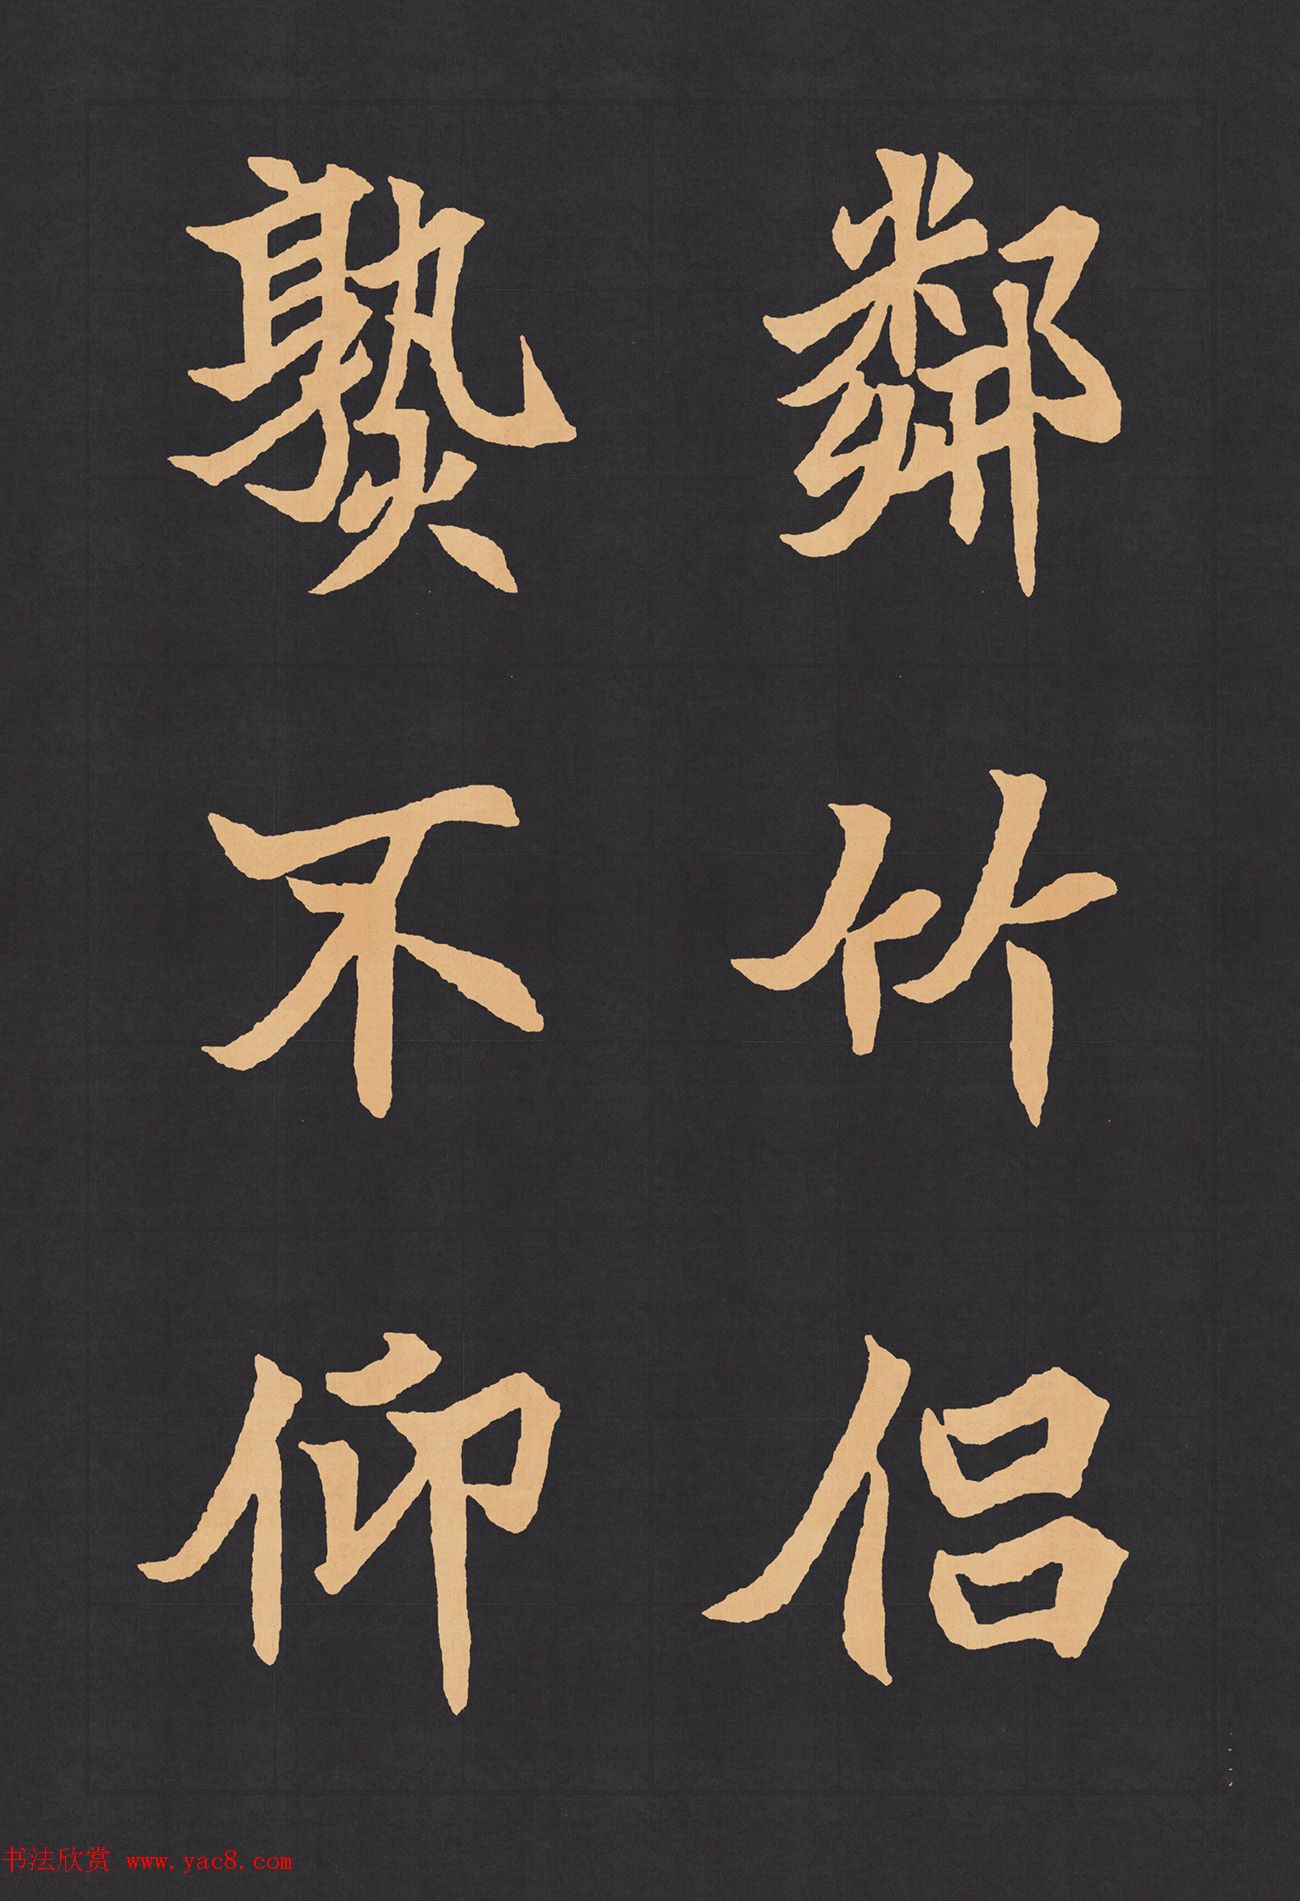 鄰竹侶
熟不仰
书法欣赏 www.yac8.com